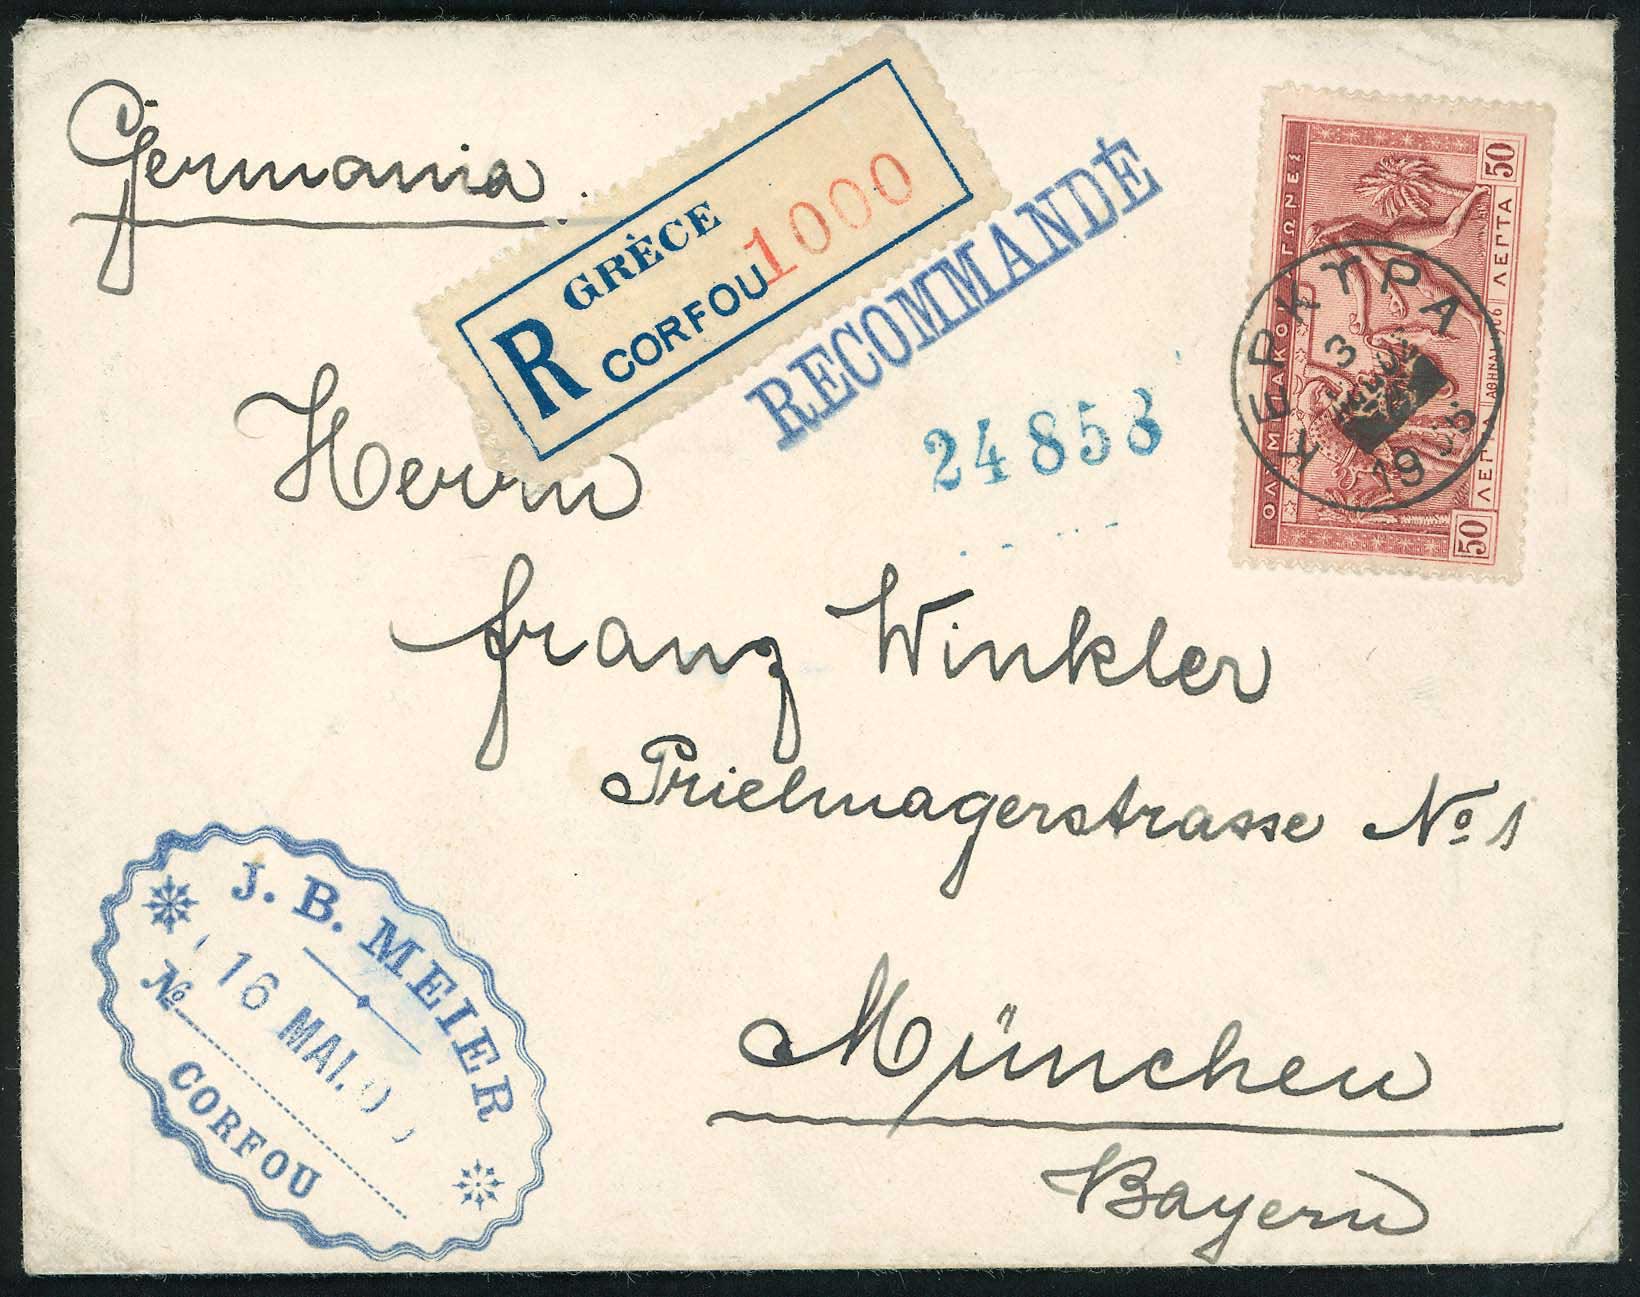 Germania
GRÈCE
R CORFOU 1000
RECOMMANDÉ
24853
ΟΛΥΜΠΙΑΚΟΙ ΑΓΩΝΕΣ
50 ΛΕΠΤΑ ΑΘΗΝΑΙ 1906 ΛΕΠΤΑ 50
ΚΕΡΚΥΡΑ
3
19
Herrn
Franz Winkler
Prielmayerstrasse No 1
München
Bayern
J. B. MEIER
16 MAI. 0
No
CORFOU